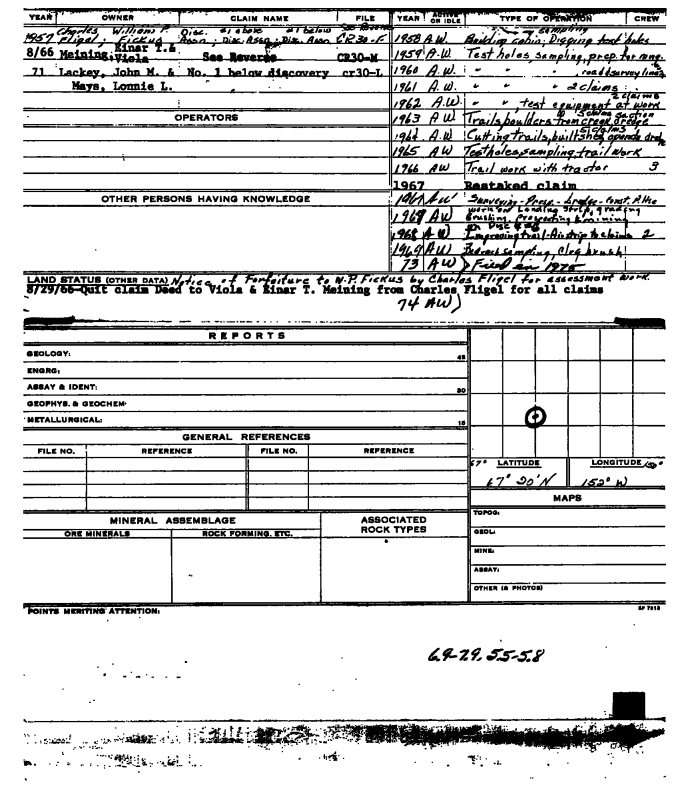 YEAR OWNER CLAIM NAME FILE YEAR ACTIVE OR IDLE TYPE OF OPERATION CREW
1957 Charles Fligel; William P. Fickus Disc. #1 above #1 below See Reverse
Assn; Disc. Assn; Disc. Assn CR30-F
8/66 Meining, Einar T.& Viola See Reverse CR30-M
71 Lackey, John M. & No. 1 below discovery cr30-L
Mays, Lonnie L.
OPERATORS
OTHER PERSONS HAVING KNOWLEDGE
sampling
1958 A.W. Building cabin; Digging test holes
1959 A.W. Test holes sampling, prep. for
1960 A.W. " " , road & survey lines
1961 A.W. " " 2 claims
2 claims
1962 A.W. " " , test equipment at work
1963 A.W Trails, boulders from creek dredge
5 claims
1964 A.W Cutting trails, built shed,
1965 AW Testholes, sampling, trail work
1966 AW Trail work with tractor 3
1967 Restaked claim
1967 AW Surveying - Prosp. - dredge - const.
work on Landing Strip, grading
Brushing, Prospecting & mining
on Disc
1968 AW Improving trail - Air strip to claims 2
1969 AW Bedrock sampling, Clrg brush
73 AW) Filed in 1975
LAND STATUS (OTHER DATA) Notice of Forfeiture to W.P. Fickus by Charles Fligel for assessment work.
8/29/66-Quit claim Deed to Viola & Einar T. Meining from Charles Fligel for all claims
74 AW)
REPORTS
GEOLOGY: 45
ENGRG:
ASSAY & IDENT: 30
GEOPHYS. & GEOCHEM·
METALLURGICAL: 15
GENERAL REFERENCES
FILE NO. REFERENCE FILE NO. REFERENCE
67° LATITUDE LONGITUDE 150°
67° 20' N 152° W
MAPS
TOPOG:
GEOL:
MINE:
ASSAY:
OTHER (& PHOTOS)
MINERAL ASSEMBLAGE ASSOCIATED ROCK TYPES
ORE MINERALS ROCK FORMING, ETC.
POINTS MERITING ATTENTION:
6.9-7.9, 5.5-5.8